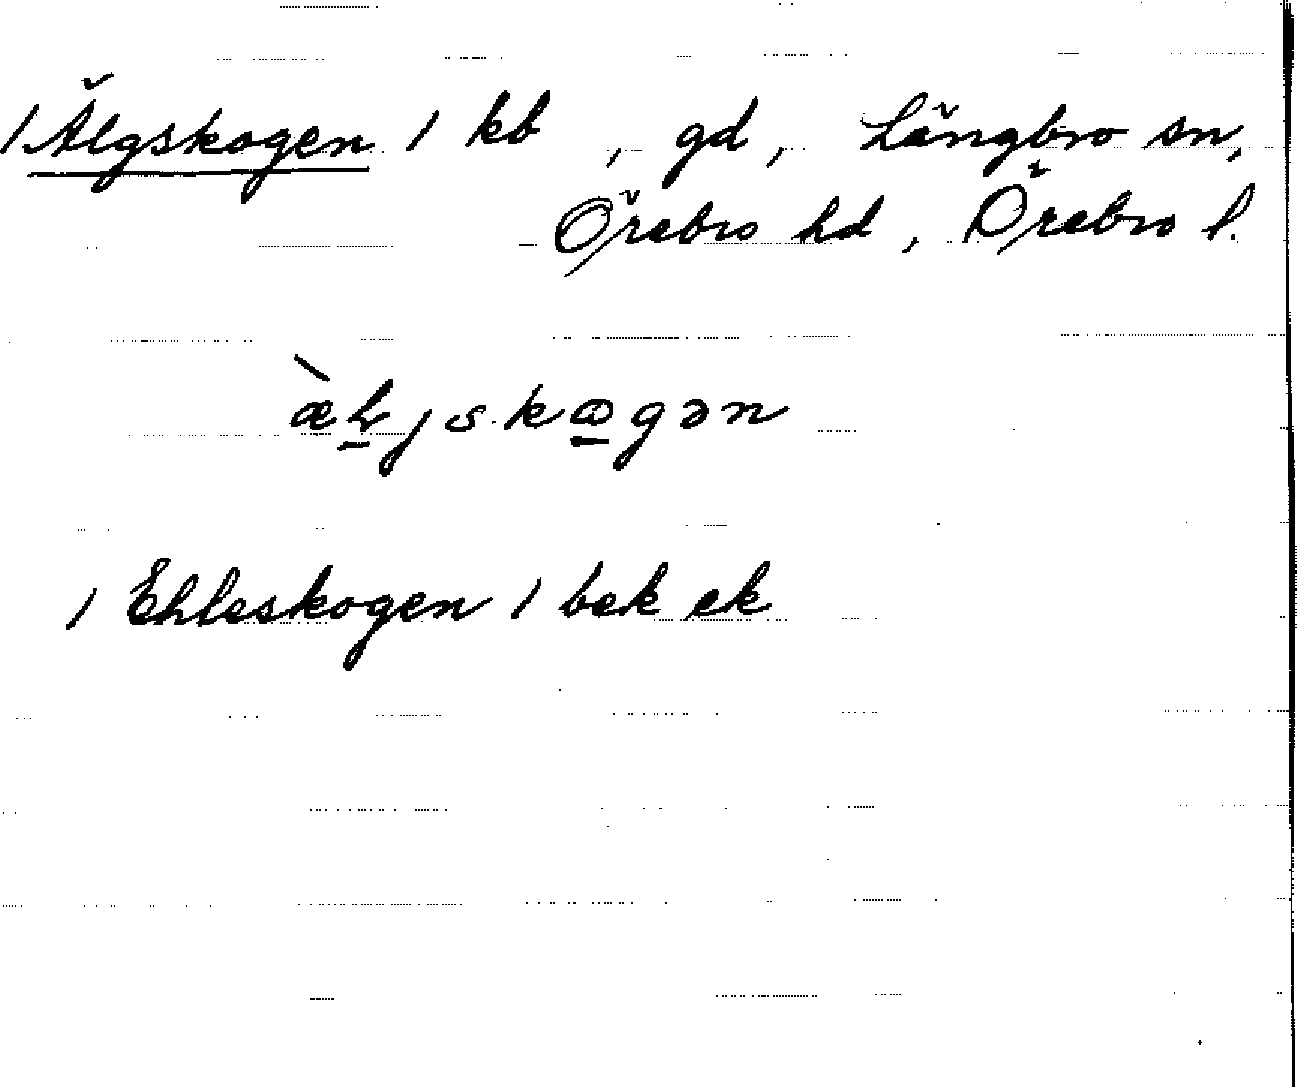 / Älgskogen / kb , gd , Längbro sn,
Örebro hd , Örebro l.
æ̀ḻjskɷ̱gən
/ Ehleskogen / bek ek